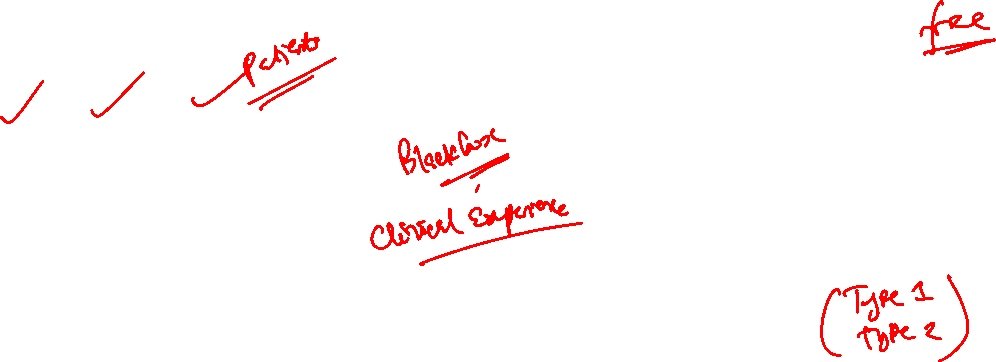 free
Patients
Black box
Clinical Experience
(Type 1
Type 2)